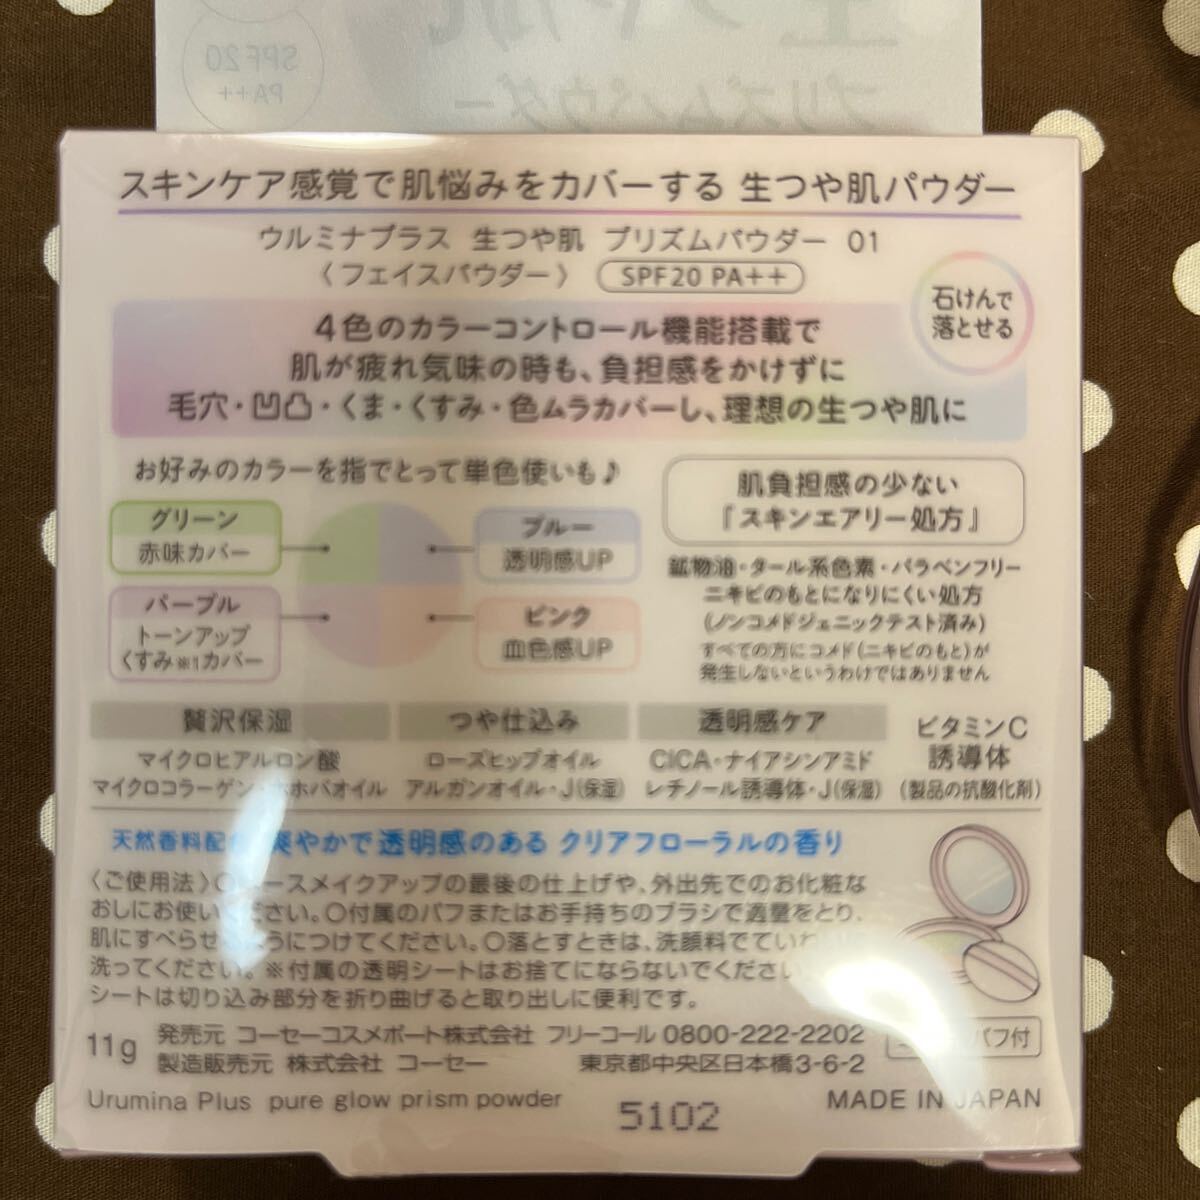 SPF20
PA++
プリズムパウダー
スキンケア感覚で肌悩みをカバーする 生つや肌パウダー
ウルミナプラス 生つや肌 プリズムパウダー 01
〈フェイスパウダー〉 SPF20 PA++
石けんで
落とせる
4色のカラーコントロール機能搭載で
肌が疲れ気味の時も、負担感をかけずに
毛穴・凹凸・くま・くすみ・色ムラカバーし、理想の生つや肌に
お好みのカラーを指でとって単色使いも♪
グリーン
赤味カバー
ブルー
透明感UP
パープル
トーンアップ
くすみ※1カバー
ピンク
血色感UP
肌負担感の少ない
『スキンエアリー処方』
鉱物油・タール系色素・パラベンフリー
ニキビのもとになりにくい処方
(ノンコメドジェニックテスト済み)
すべての方にコメド(ニキビのもと)が
発生しないというわけではありません
贅沢保湿
マイクロヒアルロン酸
マイクロコラーゲン・ホホバオイル
つや仕込み
ローズヒップオイル
アルガンオイル・J(保湿)
透明感ケア
CICA・ナイアシンアミド
レチノール誘導体・J(保湿)
ビタミンC
誘導体
(製品の抗酸化剤)
天然香料配 爽やかで透明感のある クリアフローラルの香り
〈ご使用法〉○ベースメイクアップの最後の仕上げや、外出先でのお化粧な
おしにお使いください。○付属のパフまたはお手持ちのブラシで適量をとり、
肌にすべらせるようにつけてください。○落とすときは、洗顔料でていね
洗ってください。※付属の透明シートはお捨てにならないでください
シートは切り込み部分を折り曲げると取り出しに便利です。
11g
発売元 コーセーコスメポート株式会社 フリーコール 0800-222-2202
製造販売元 株式会社 コーセー 東京都中央区日本橋3-6-2
パフ付
Urumina Plus pure glow prism powder
5102
MADE IN JAPAN